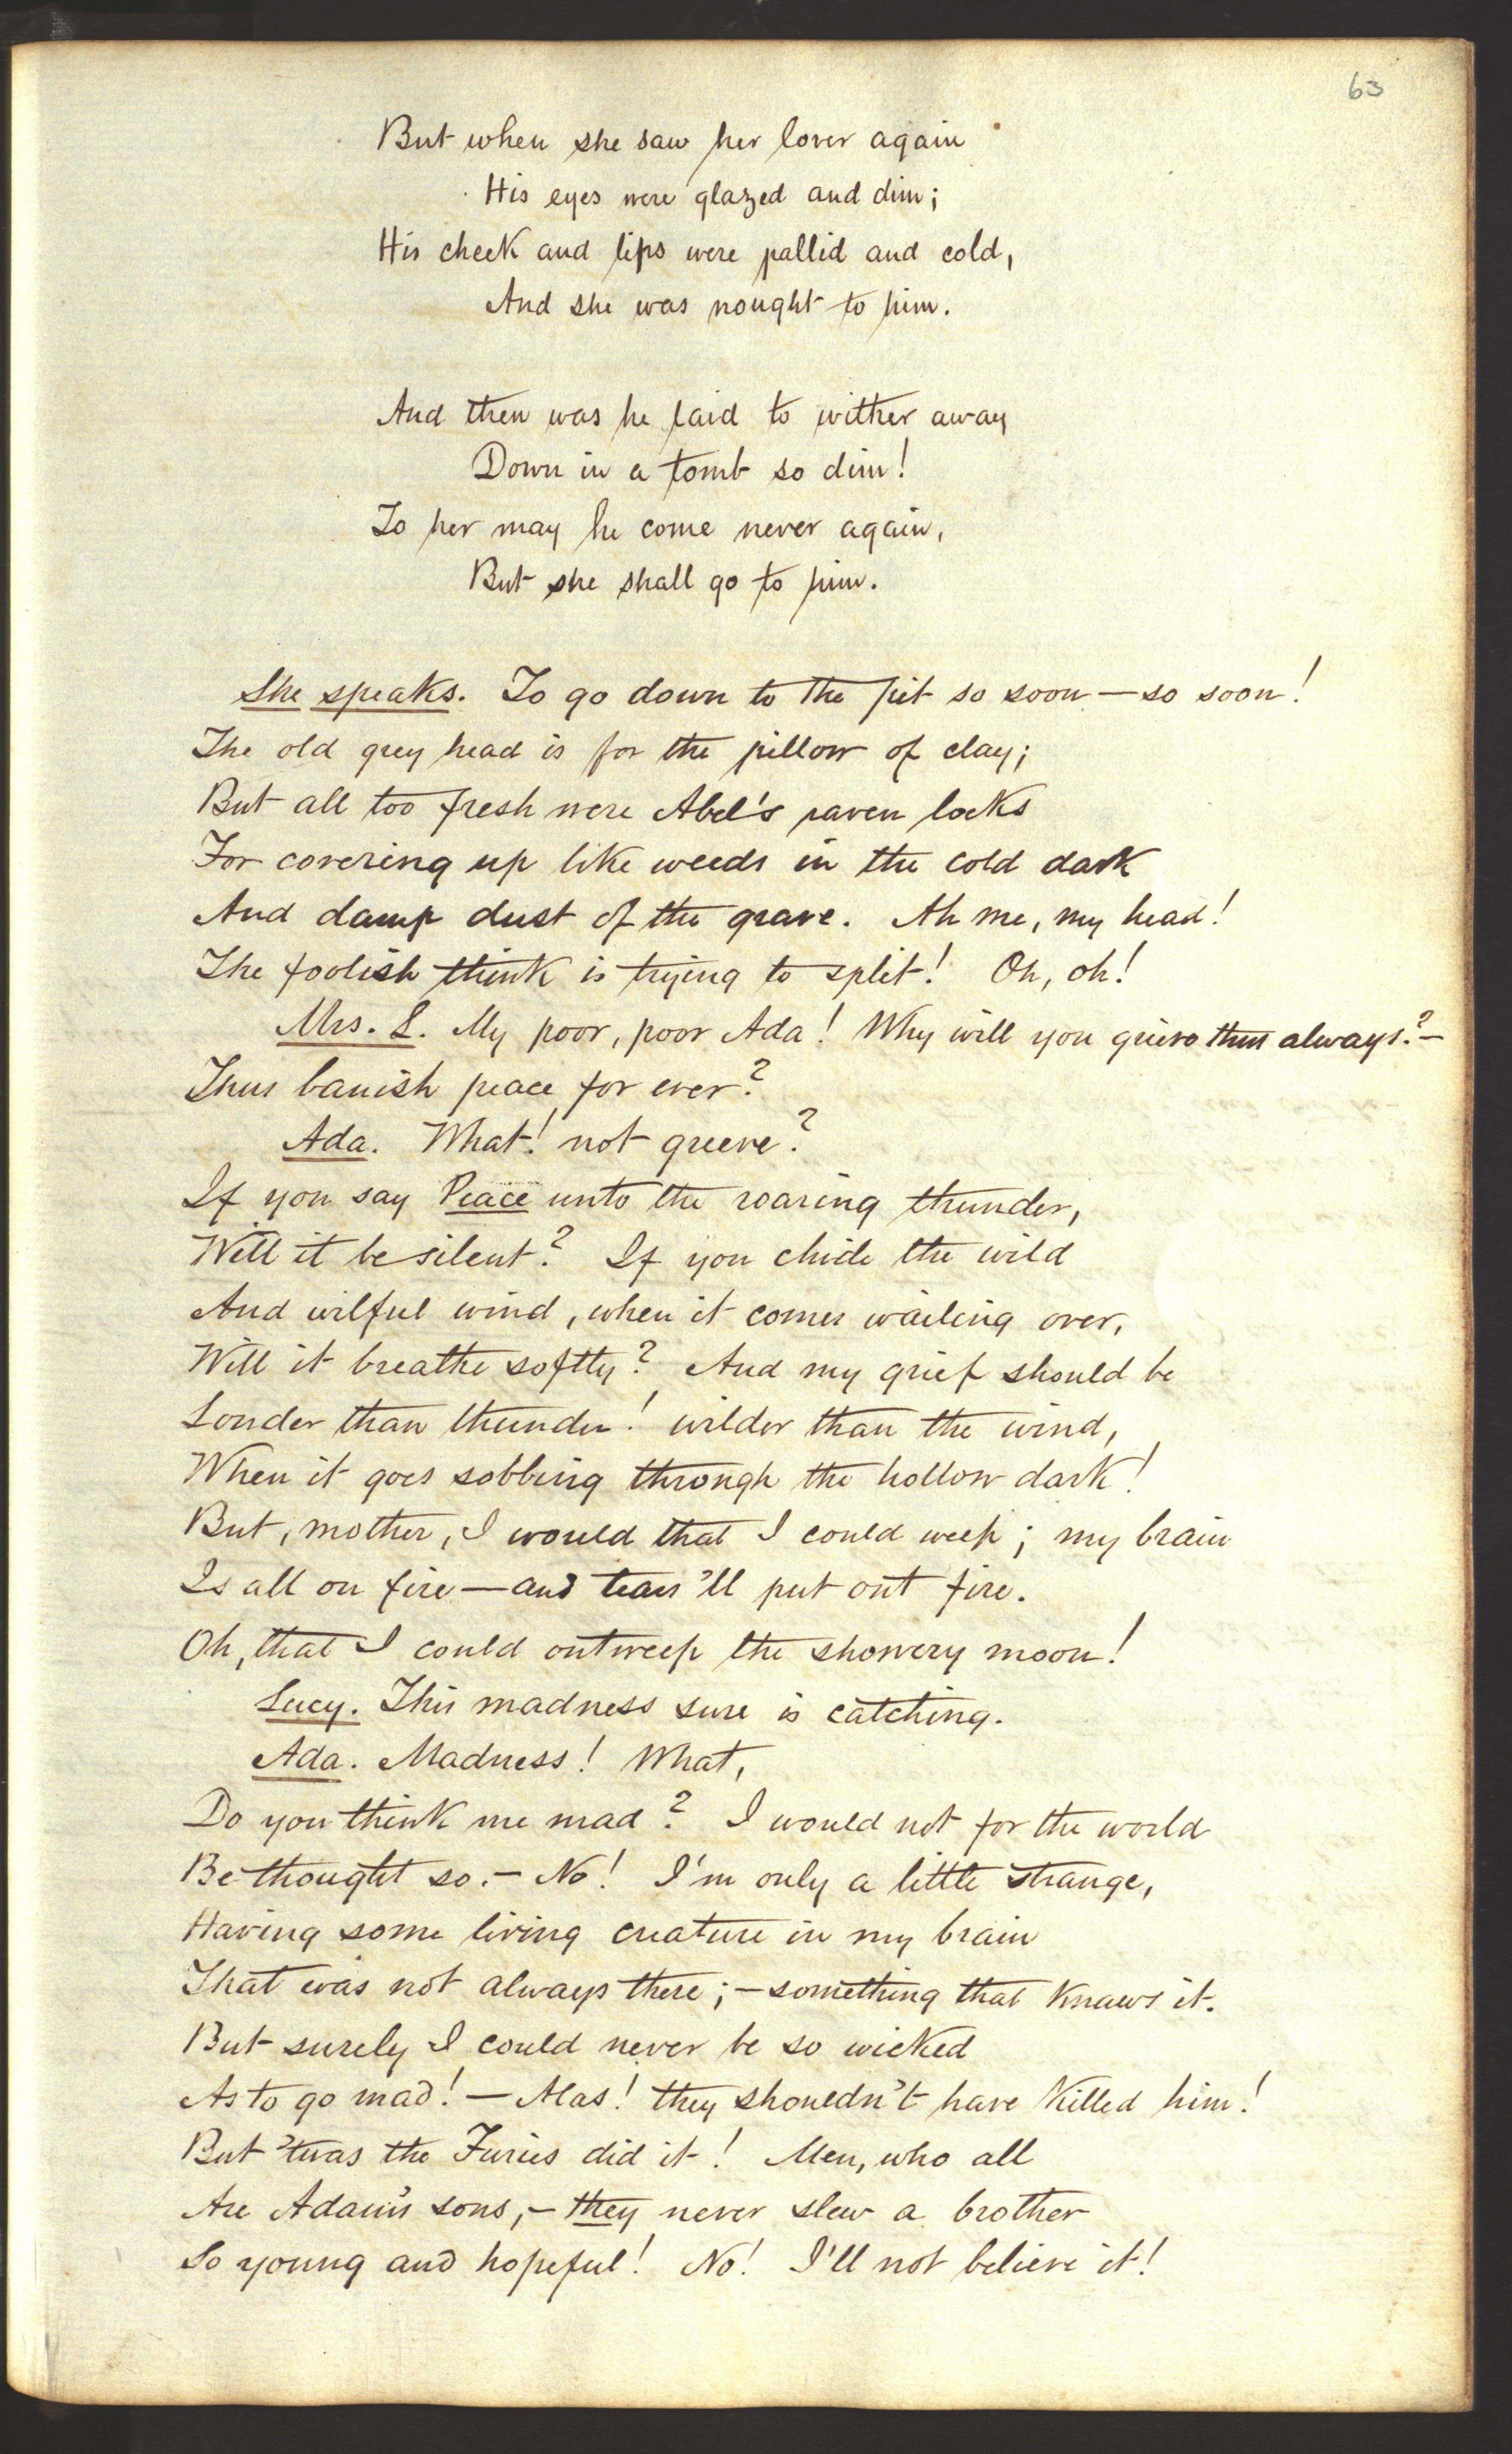 63
But when she saw her lover again
His eyes were glazed and dim;
His cheek and lips were pallid and cold,
And she was nought to him.
And then was he laid to wither away
Down in a tomb so dim!
To her may he come never again,
But she shall go to him.
She speaks. To go down to the pit so soon — so soon!
The old grey head is for the pillow of clay;
But all too fresh were Abel's raven locks
For covering up like weeds in the cold dark
And damp dust of the grave. Ah me, my head!
The foolish think is trying to split! Oh, oh!
Mrs. L. My poor, poor Ada! Why will you grieve thus always? —
Thus banish peace for ever?
Ada. What! not greeve?
If you say Peace unto the roaring thunder,
Will it be silent? If you chide the wild
And wilful wind, when it comes wailing over,
Will it breathe softly? And my grief should be
Louder than thunder! wilder than the wind,
When it goes sobbing through the hollow dark!
But, mother, I would that I could weep; my brain
Is all on fire — and tears 'll put out fire.
Oh, that I could outweep the showery moon!
Lucy. This madness sure is catching.
Ada. Madness! What,
Do you think me mad? I would not for the world
Be thought so. — No! I'm only a little strange,
Having some living creature in my brain
That was not always there; — something that knaws it.
But surely I could never be so wicked
As to go mad! — Alas! they shouldn't have killed him!
But 'twas the Furies did it! Men, who all
Are Adam's sons, — they never slew a brother
So young and hopeful! No! I'll not believe it!